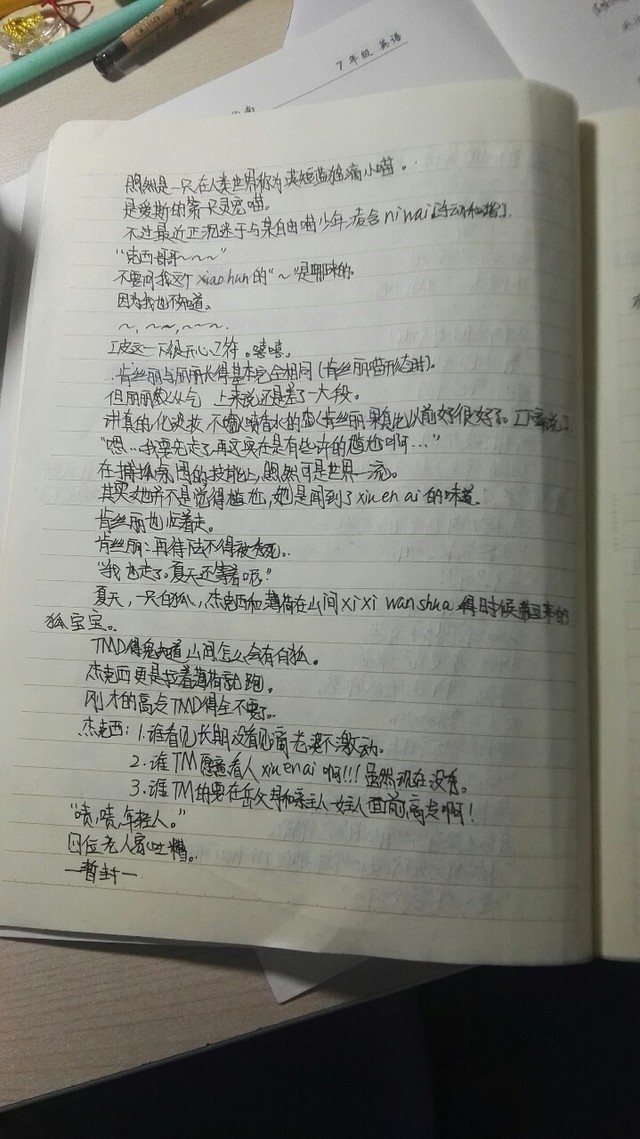 7年级 英语
熙然是一只在人类世界称为英短蓝猫滴小喵。
是爱斯的第一只灵宠喵。
不过最近正沉迷于与某自由喵少年
"克西哥哥~~~"
不要问我这个xiaohun的"~"是哪来的。
因为我也不知道。
~,~~,~~~.
皮这一下很开心ing。嘻嘻。
肯丝丽与丽丽长得基本完全相同(肯丝丽喵形态时).
但丽丽 从气 上来说还是差了一大段。
讲真的化淡妆,不 喷香水的 肯丝丽果然比以前好很好了。
"嗯...我要先走了,再这实在是有些许的尴尬啊..."
在捕抓氛围的技能上,熙然可是世界一流。
其实她并不是觉得尴尬,她是闻到了xiu en ai 的味道.
肯丝丽也 着走.
肯丝丽:再待 不得被 死.
"我也走了。夏天还等着呢。"
夏天,一只白狐,杰克西和薄荷在山间xi xi wan shua 得时候带回来的
狐宝宝。
TMD得鬼知道山间怎么会有白狐。
杰克西更是拉着薄荷就跑。
刚才的高贵TMD得全不要了.
杰克西:1.谁看见长期没看见滴老婆不激动。
2.谁TM愿意看人xiu en ai 啊!!!虽然现在没有。
3.谁TM的要在岳父母和亲主人女主人面前高贵啊!
"啧,啧,年轻人。"
四位老人家吐糟.
—暂封—